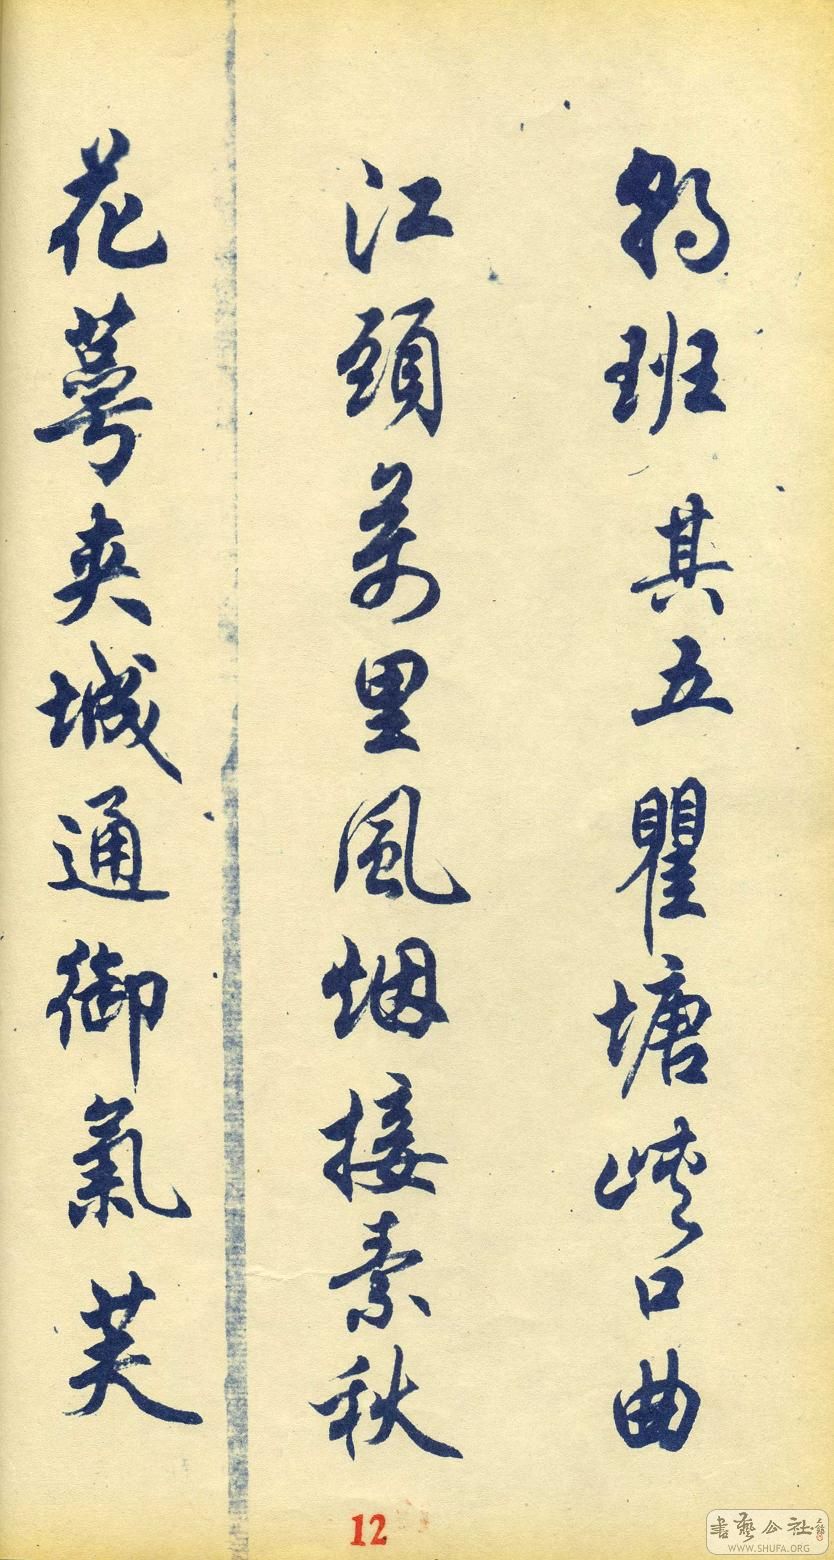 朝班其五瞿塘峽口曲
江頭萬里風烟接素秋
花萼夾城通御氣芙
12
書藝公社
WWW.SHUFA.ORG